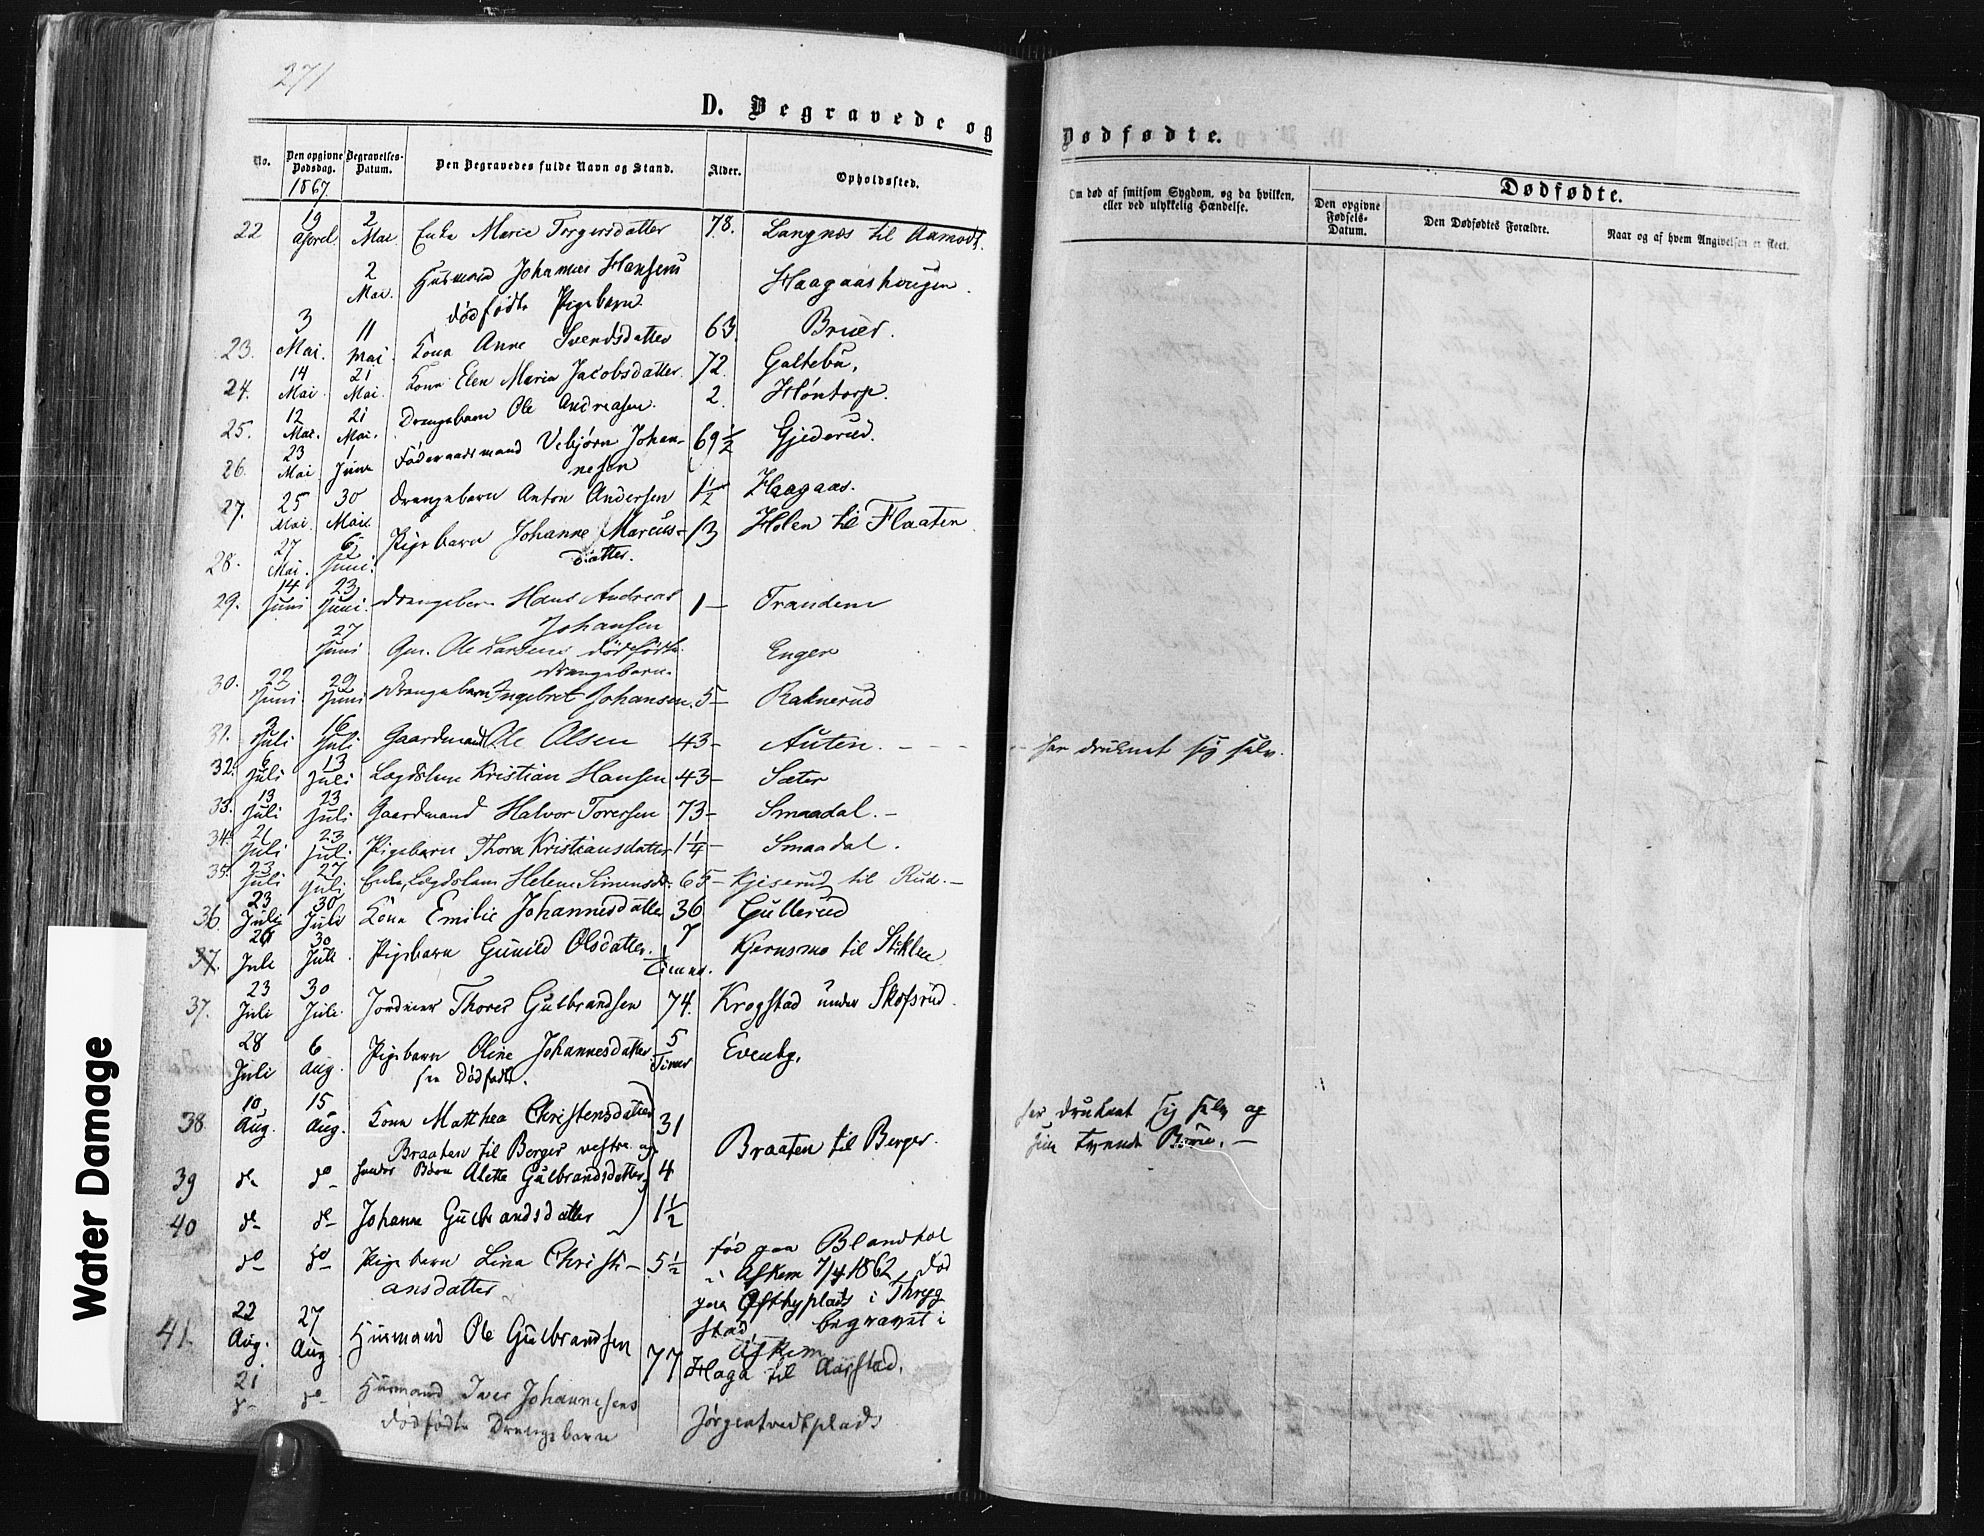 271
D. Begravede og
Dødfødte.
No.
Den opgivne Dødsdag.
1867.
Begravelses-Datum.
Den Begravedes fulde Navn og Stand.
Alder.
Opholdssted.
Om død af smitsom Sygdom, og da hvilken, eller ved ulykkelig Hændelse.
Dødfødte.
Den opgivne Fødsels-Datum.
Den Dødfødtes Forældre.
Naar og af hvem Angivelsen er skeet.
22 19 April 2 Mai Enke Marie Torgersdatter 78. Langnes til Aamodt.
2 Mai. Husmand Johannes Hansens Haagaashougen.
dødfødte Pigebarn.
23. 3 Mai. 11 Mai. Kona Anne Svendsdatter 63. Brues.
24. 14 Mai. 21 Mai. Kona Elen Maria Jacobsdatter. 72. Galtebu.
25. 12 Mai. 21 Mai. Drengebarn Ole Andreasen. 2. Høntorp.
26. 23 Mai. 1 Juni Føderaadsmand Vebjørn Johan- 69 1/2 Gjederud.
nesen
27. 25 Mai. 30 Mai Drengebarn Anton Andersen 1 1/2 Haagaas.
28. 27 Mai. 6 Juni. Pigebarn Johanne Marcus- 13 Holen til Flaaten
datter.
29. 14 Juni 23 Juni. Drengebarn Hans Andreas 1 – Trandem
Johansen
27 Juni Gm. Ole Larsens dødfødte Enger
Drengebarn.
30. 22 Juni 29 Juni Drengebarn Ingebret Johansen. 5 – Raknerud
31. 2 Juli 16 Juli Gaardmand Ole Olsen 43 – Auten. – – – har druknet sig selv.
32. 6 Juli 13 Juli Lægdslem Kristian Hansen 43 – Sæter
33. 13 Juli 23 Juli Gaardmand Halvor Torersen 73 – Smaadal. –
34. 21 Juli 23 Juli. Pigebarn Thora Kristiansdatter 1 1/4 – Smaadal.
35. 23 Juli 27 Juli Enke, Lægdslem Helene Simensdr. 65 – Kjiserud til Rud. –
36. 23 Juli 30 Juli Kona Emilie Johannesdatter 36 Gullerud
37. 26 Juli 30 Juli. Pigebarn Gunild Olsdatter. 7 Timer. Kjernsmo til Stiklen
37. 23 Juli 30 Juli. Jordeier Thorer Gulbrandsen 74. Krogstad under Skofsrud.
28 Juli 6 Aug. Pigebarn Oline Johannesdatter 5 Timer Evenby.
38 10 Aug. 15 Aug. Kona Matthea Christensdatter 31 har druknet sig selv og
Braaten til Berger vestre og Braaten til Berger. sine tvende Børn. –
39 do do hendes Børn Alette Gulbrandsdatter 4
40 do do Johanne Gulbrandsdatter 1 1/2
do do Pigebarn Lina Christi- 5 1/2 fød paa Blandkol
ansdatter i Askem 7/4 1862, død
paa plads i Thryg
stad, begravet i
Askem
41. 22 Aug. 27 Aug Husmand Ole Gulbrandsen 77 Haga til Aarstad.
21 do do Husmand Iver Johannesens Jørgentvedtplads
dødfødte Drengebarn
Water Damage